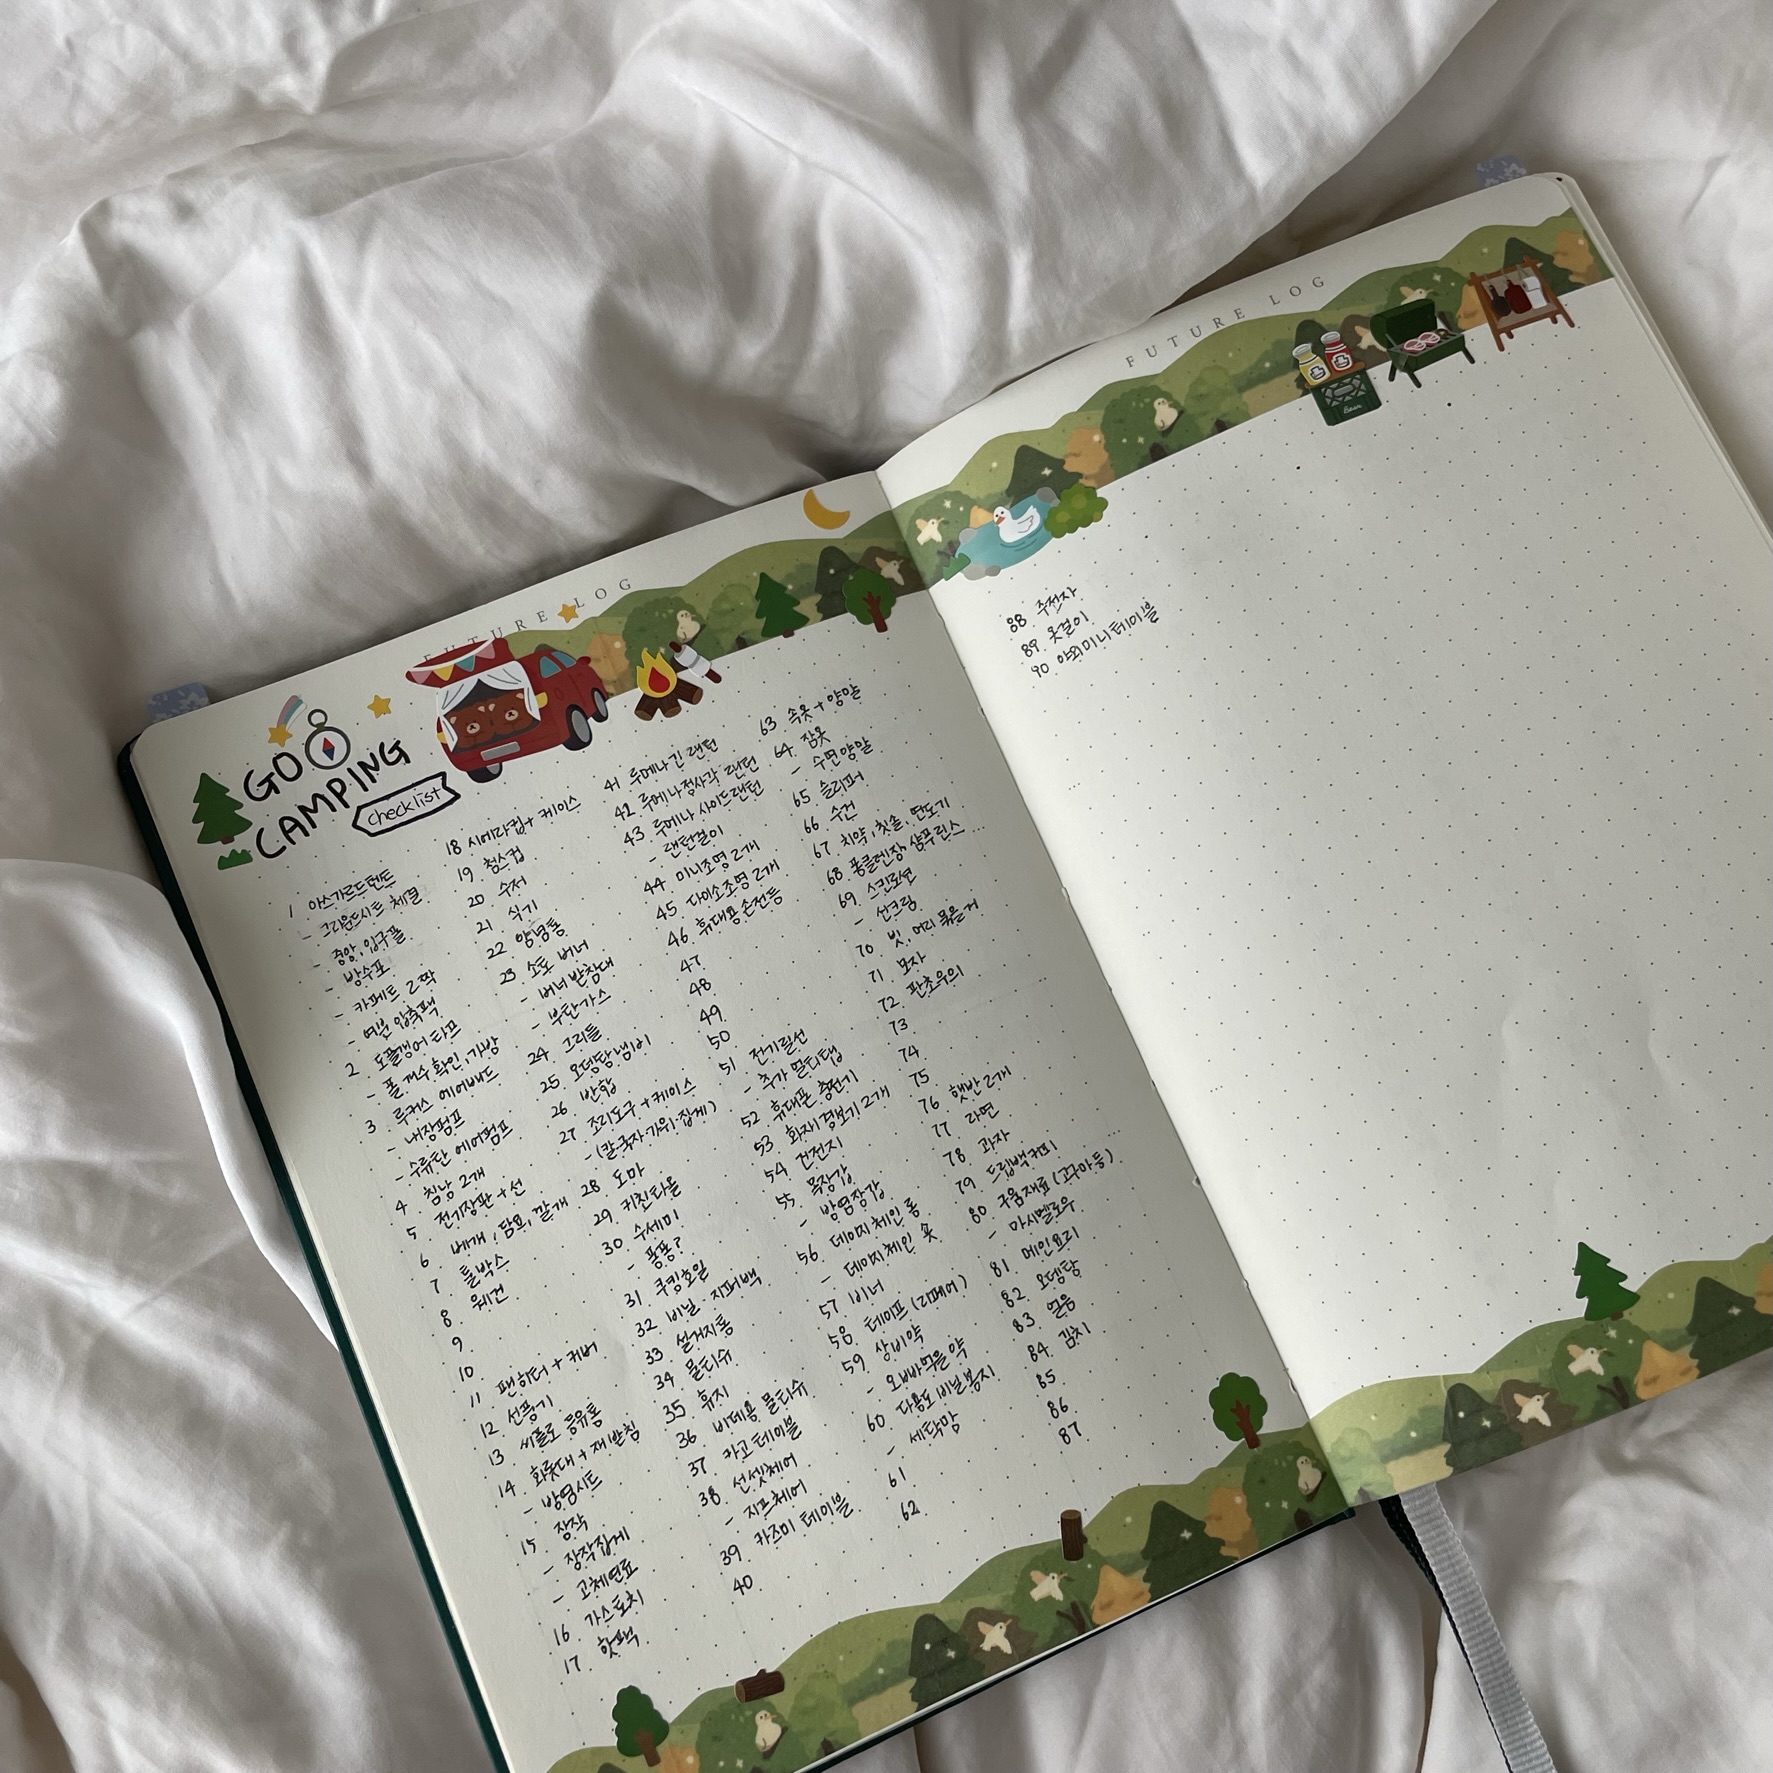 FUTURE LOG
GO
CAMPING
checklist
1 아스가르드텐트
- 그라운드시트 체결
- 중앙, 입구폴
- 방수포
- 카페트 2짝
- 여분 압축팩
2 도플갱어 타프
- 폴 개수 확인, 가방
3 루커스 에어배드
- 내장펌프
- 수류탄 에어펌프
4 침낭 2개
5 전기장판 + 선
6 베개, 담요, 깔개
7 툴박스
8 웨건
9
10
11 팬히터 + 커버
12 선풍기
13 씨플로 등유통
14 화롯대 + 재받침
- 방염시트
15 장작
- 장작집게
- 고체연료
16 가스토치
17 핫팩
18 시에라컵 + 케이스
19 첨스컵
20 수저
21 식기
22 양념통
23 소토 버너
- 버너받침대
- 부탄가스
24 그리들
25 오뎅탕냄비
26 반합
27 조리도구 + 케이스
- (칼·국자·가위·집게)
28 도마
29 키친타올
30 수세미
- 퐁퐁?
31 쿠킹호일
32 비닐·지퍼백
33 설거지통
34 물티슈
35 휴지
36 비데용 물티슈
37 카고테이블
38 선셋체어
- 지프체어
39 카즈미 테이블
40
41 루메나긴랜턴
42 루메나정사각 랜턴
43 루메나 사이드랜턴
- 랜턴걸이
44 미니조명 2개
45 다이소조명 2개
46 휴대용손전등
47
48
49
50
51 전기릴선
- 추가 멀티탭
52 휴대폰 충전기
53 화재경보기 2개
54 건전지
55 목장갑
- 방염장갑
56 데이지체인 롱
- 데이지체인 숏
57 비너
58 테이프 (리페어)
59 상비약
- 오빠먹을약
60 다용도 비닐봉지
- 세탁망
61
62
63 속옷 + 양말
64 잠옷
- 수면양말
65 슬리퍼
66 수건
67 치약, 칫솔, 면도기
68 폼클렌징, 샴푸린스...
69 스킨로션
- 선크림
70 빗, 머리 묶을거
71 모자
72 판초우의
73
74
75
76 햇반 2개
77 라면
78 과자
79 드립백커피
80 구움재료 (고구마 등)
- 마시멜로우
81 메인요리
82 오뎅탕
83 얼음
84 김치
85
86
87
FUTURE LOG
Bear
88 주전자
89 옷걸이
90 야외미니테이블